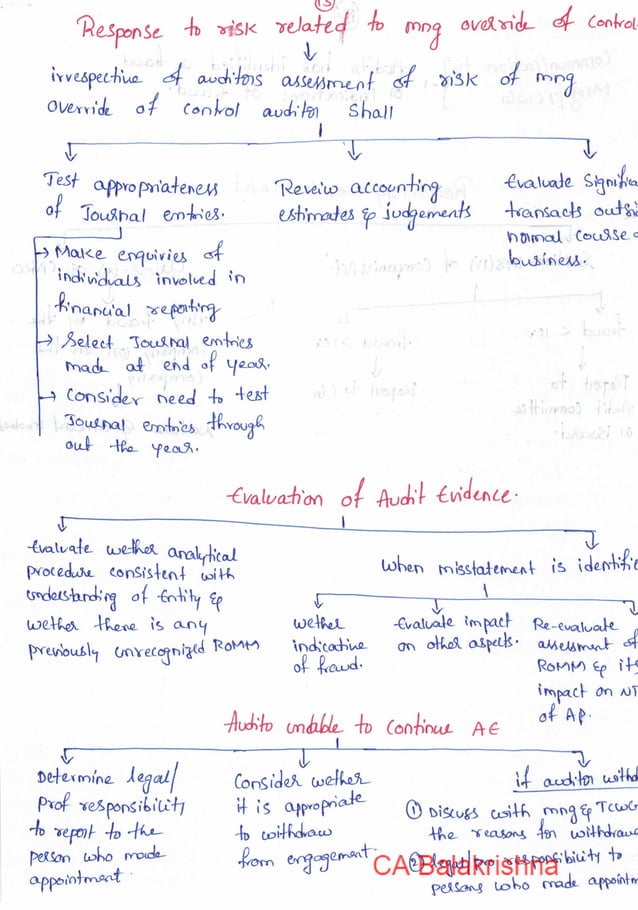 (13)
Response to risk related to mng override of control
irrespective of auditors assessment of risk of mng
override of control auditor shall
Test appropriateness
of Journal entries.
→ Make enquiries of
individuals involved in
financial reporting
→ Select Journal entries
made at end of year.
→ Consider need to test
Journal entries through
out the year.
Reveiw accounting
estimates & judgements
Evaluate Significa
transacts outsi
normal course o
business.
Evaluation of Audit Evidence.
Evaluate wether analytical
procedure consistent with
understanding of Entity &
wether there is any
previously unrecognized ROMM
when misstatement is identifie
wether
indicative
of fraud.
Evaluate impact
on other aspects.
Re-evaluate
assessment of
ROMM & its
impact on NT
of AP.
Audito undable to continue AE
Determine legal/
Prof responsibility
to report to the
person who made
appointment.
Consider wether
it is appropriate
to withdraw
from engagement.
if auditor withd
① Discuss with mng & TCWG
the reasons for withdrawa
② legal responsibility to
persons who made appointm
CA Balakrishna